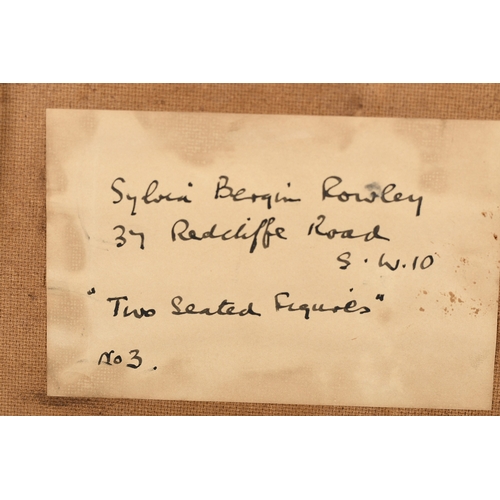 Sylvia Bergin Rowley
37 Redcliffe Road
S.W.10
"Two Seated Figures"
No 3.